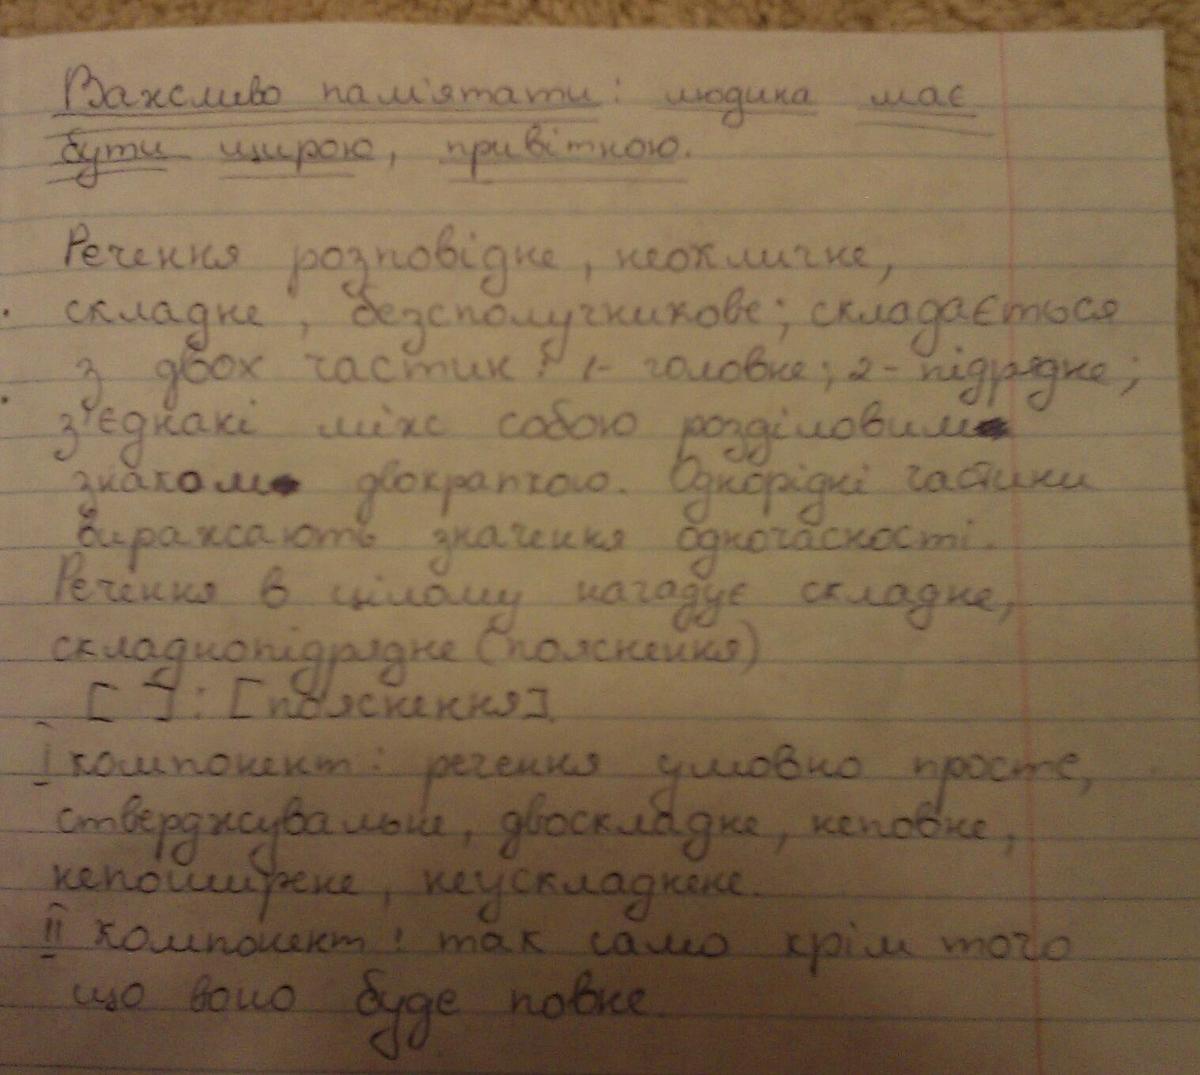 Важливо пам'ятати: людина має
бути щирою, привітною.
Речення розповідне, неокличне,
складне, безсполучникове; складається
з двох частин: 1- головне; 2- підрядне;
з'єднані між собою розділовим
знаком двокрапкою. Однорідні частини
виражають значення одночасності.
Речення в цілому нагадує складне,
складнопідрядне (пояснення)
[ ]: [пояснення].
I компонент: речення умовно просте,
стверджувальне, двоскладне, неповне,
непоширене, неускладнене.
II компонент: так само крім того
що воно буде повне.